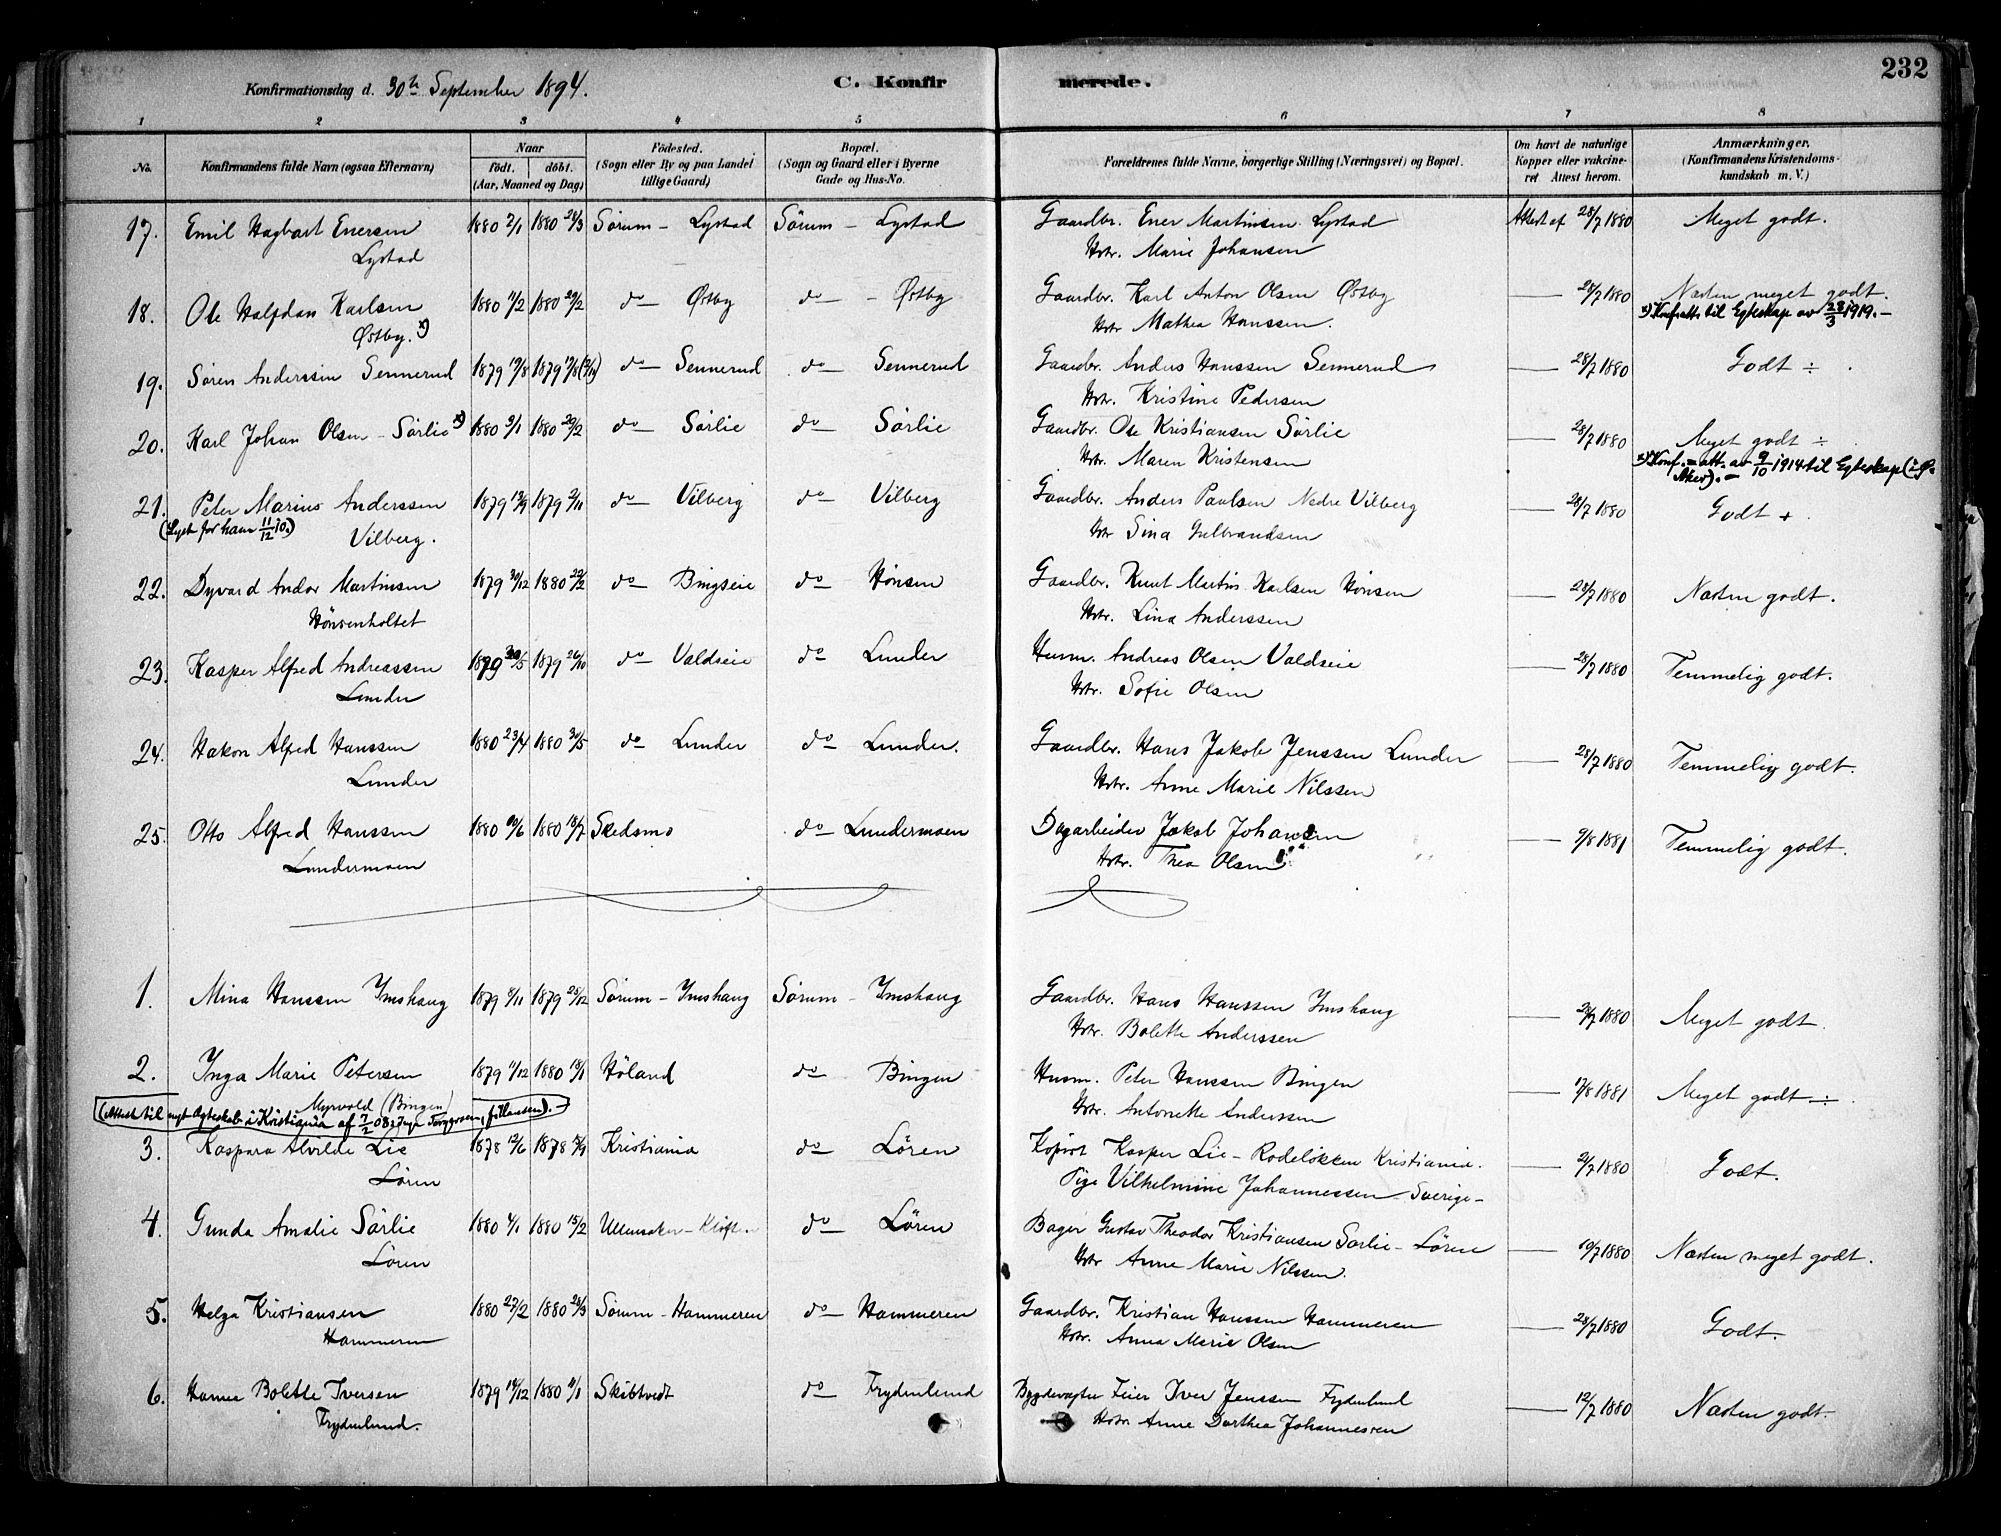 232
Konfirmationsdag d. 30te September 1894. C. Konfirmerede.
1 2 3 4 5 6 7 8
No. Konfirmandens fulde Navn (ogsaa Efternavn) Naar født. døbt. (Aar, Maaned og Dag) Fødested. (Sogn eller By og paa Landet tillige Gaard) Bopæl. (Sogn og Gaard eller i Byerne Gade og Hus-No. Forældrenes fulde Navne, borgerlige Stilling (Næringsvei) og Bopæl. Om havt de naturlige Kopper eller vakcineret Attest herom. Anmærkninger. (Konfirmandens Kristendomskundskab m. V.)
17. Emil Hagbart Enersen 1880 2/1 1880 28/3 Sørum - Lystad Sørum - Lystad Gaardbr. Ener Martinsen Lystad Attest af 28/7 1880 Meget godt.
Lystad Hstr. Marie Johansen
18. Ole Halfdan Karlsen 1880 11/2 1880 29/2 do - Østby do - Østby Gaardbr. Karl Anton Olsen Østby — 28/7 1880 Næsten meget godt.
Østby. x) Hstr. Mathea Hanssen. x) Konfratt. til Egteskap av 28/3 1919.-
19. Søren Anderssen Sennerud 1879 19/8 do - Sennerud do - Sennerud Gaardbr. Anders Hanssen Sennerud — 28/7 1880 Godt ÷.
Hstr. Kristine Pedersen
20. Karl Johan Olsen - Sørlie x) 1880 9/1 1880 29/2 do - Sørlie do - Sørlie Gaardbr. Ole Kristiansen Sørlie — 28/7 1880 Meget godt ÷
Hstr. Maren Kristensen x) Konf.=att. av 9/10 1914 til Egteskap (i Ø. Aker).-
21. Peter Marius Anderssen 1879 13/9 1879 2/11 do - Vilberg do - Vilberg Gaardbr. Anders Paulsen Nedre Vilberg — 28/7 1880 Godt +
(Lyst for ham 11/12 10.) Vilberg. Hstr. Sina Gulbrandsen
22. Dyvard Andor Martinsen 1879 30/12 1880 22/2 do - Bingseie do - Hønsen Gaardbr. Knut Martin Karlsen Hønsen — 28/7 1880 Næsten godt.
Hønsenholtet Hstr. Lina Anderssen
23. Kasper Alfred Andreassen 1879 1879 26/10 do - Valdseie do - Lunder Husm. Andreas Olsen Valdseie — 28/7 1880 Temmelig godt.
Lunder Hstr. Sofie Olsen
24. Hakon Alfred Hanssen 1880 23/4 1880 30/5 do - Lunder do - Lunder. Gaardbr. Hans Jakob Jenssen Lunder — 28/7 1880 Temmelig godt.
Lunder Hstr. Anne Marie Nilssen
25. Otto Alfred Hanssen 1880 1880 18/7 Skedsmo do - Lundermoen Dagarbeider Jakob Johansen — 9/8 1881 Temmelig godt.
Lundermoen Hstr. Thea Olsen
1. Mina Hanssen Ymshaug 1879 8/11 1879 25/12 Sørum - Ymshaug Sørum - Ymshaug Gaardbr. Hans Hanssen Ymshaug 1880 Meget godt.
Hstr. Bolette Anderssen
2. Inga Marie Petersen 1879 11/12 1880 18/1 Høland do - Bingen Husm. Peter Hanssen Bingen — 17/8 1881 Meget godt ÷.
Myrvold (Bingen) Hstr. Antonette Anderssen
(Attest til nyt Egteskab i Kristiania af 7/2 08
3. Kaspara Alvilde Lie 1878 12/6 1878 Kristiania do - Løren Kopist Kasper Lie - Rodeløkken Kristiania. — 2/7 1880 Godt.
Løren Pige Vilhelmine Johannessen - Sverige -
4. Gunda Amalie Sørlie 1880 4/1 1880 15/2 Ullensaker - Kløften do - Løren Bager Gustav Theodor Kristiansen Sørlie - Løren — 19/7 1880 Næsten meget godt.
Løren Hstr. Anne Marie Nilssen.
5. Helga Kristiansen 1880 27/2 1880 28/3 Sørum - Hammeren do - Hammeren Gaardbr. Kristian Hanssen Hammeren — 28/7 1880 Godt.
Hammeren Hstr. Anna Marie Olsen
6. Hanna Bolette Iversen 1879 14/12 1880 11/1 Skibtvedt do - Frydenlund Bygdevægter Feier Iver Jenssen Frydenlund — 12/7 1880 Næsten godt.
Frydenlund. Hstr. Anne Dorthea Johannessen